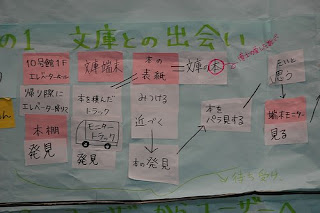 の1 文庫との出会い
10号館1F
エレベーターホール
帰り際に
エレベーター降りて
本棚
発見
文庫端末
本を積んだ
トラック
モニター
トラック
発見
本の
表紙
みつける
近づく
本の発見
文庫の本
本を
パラ見する
思う
端末モニター
見る